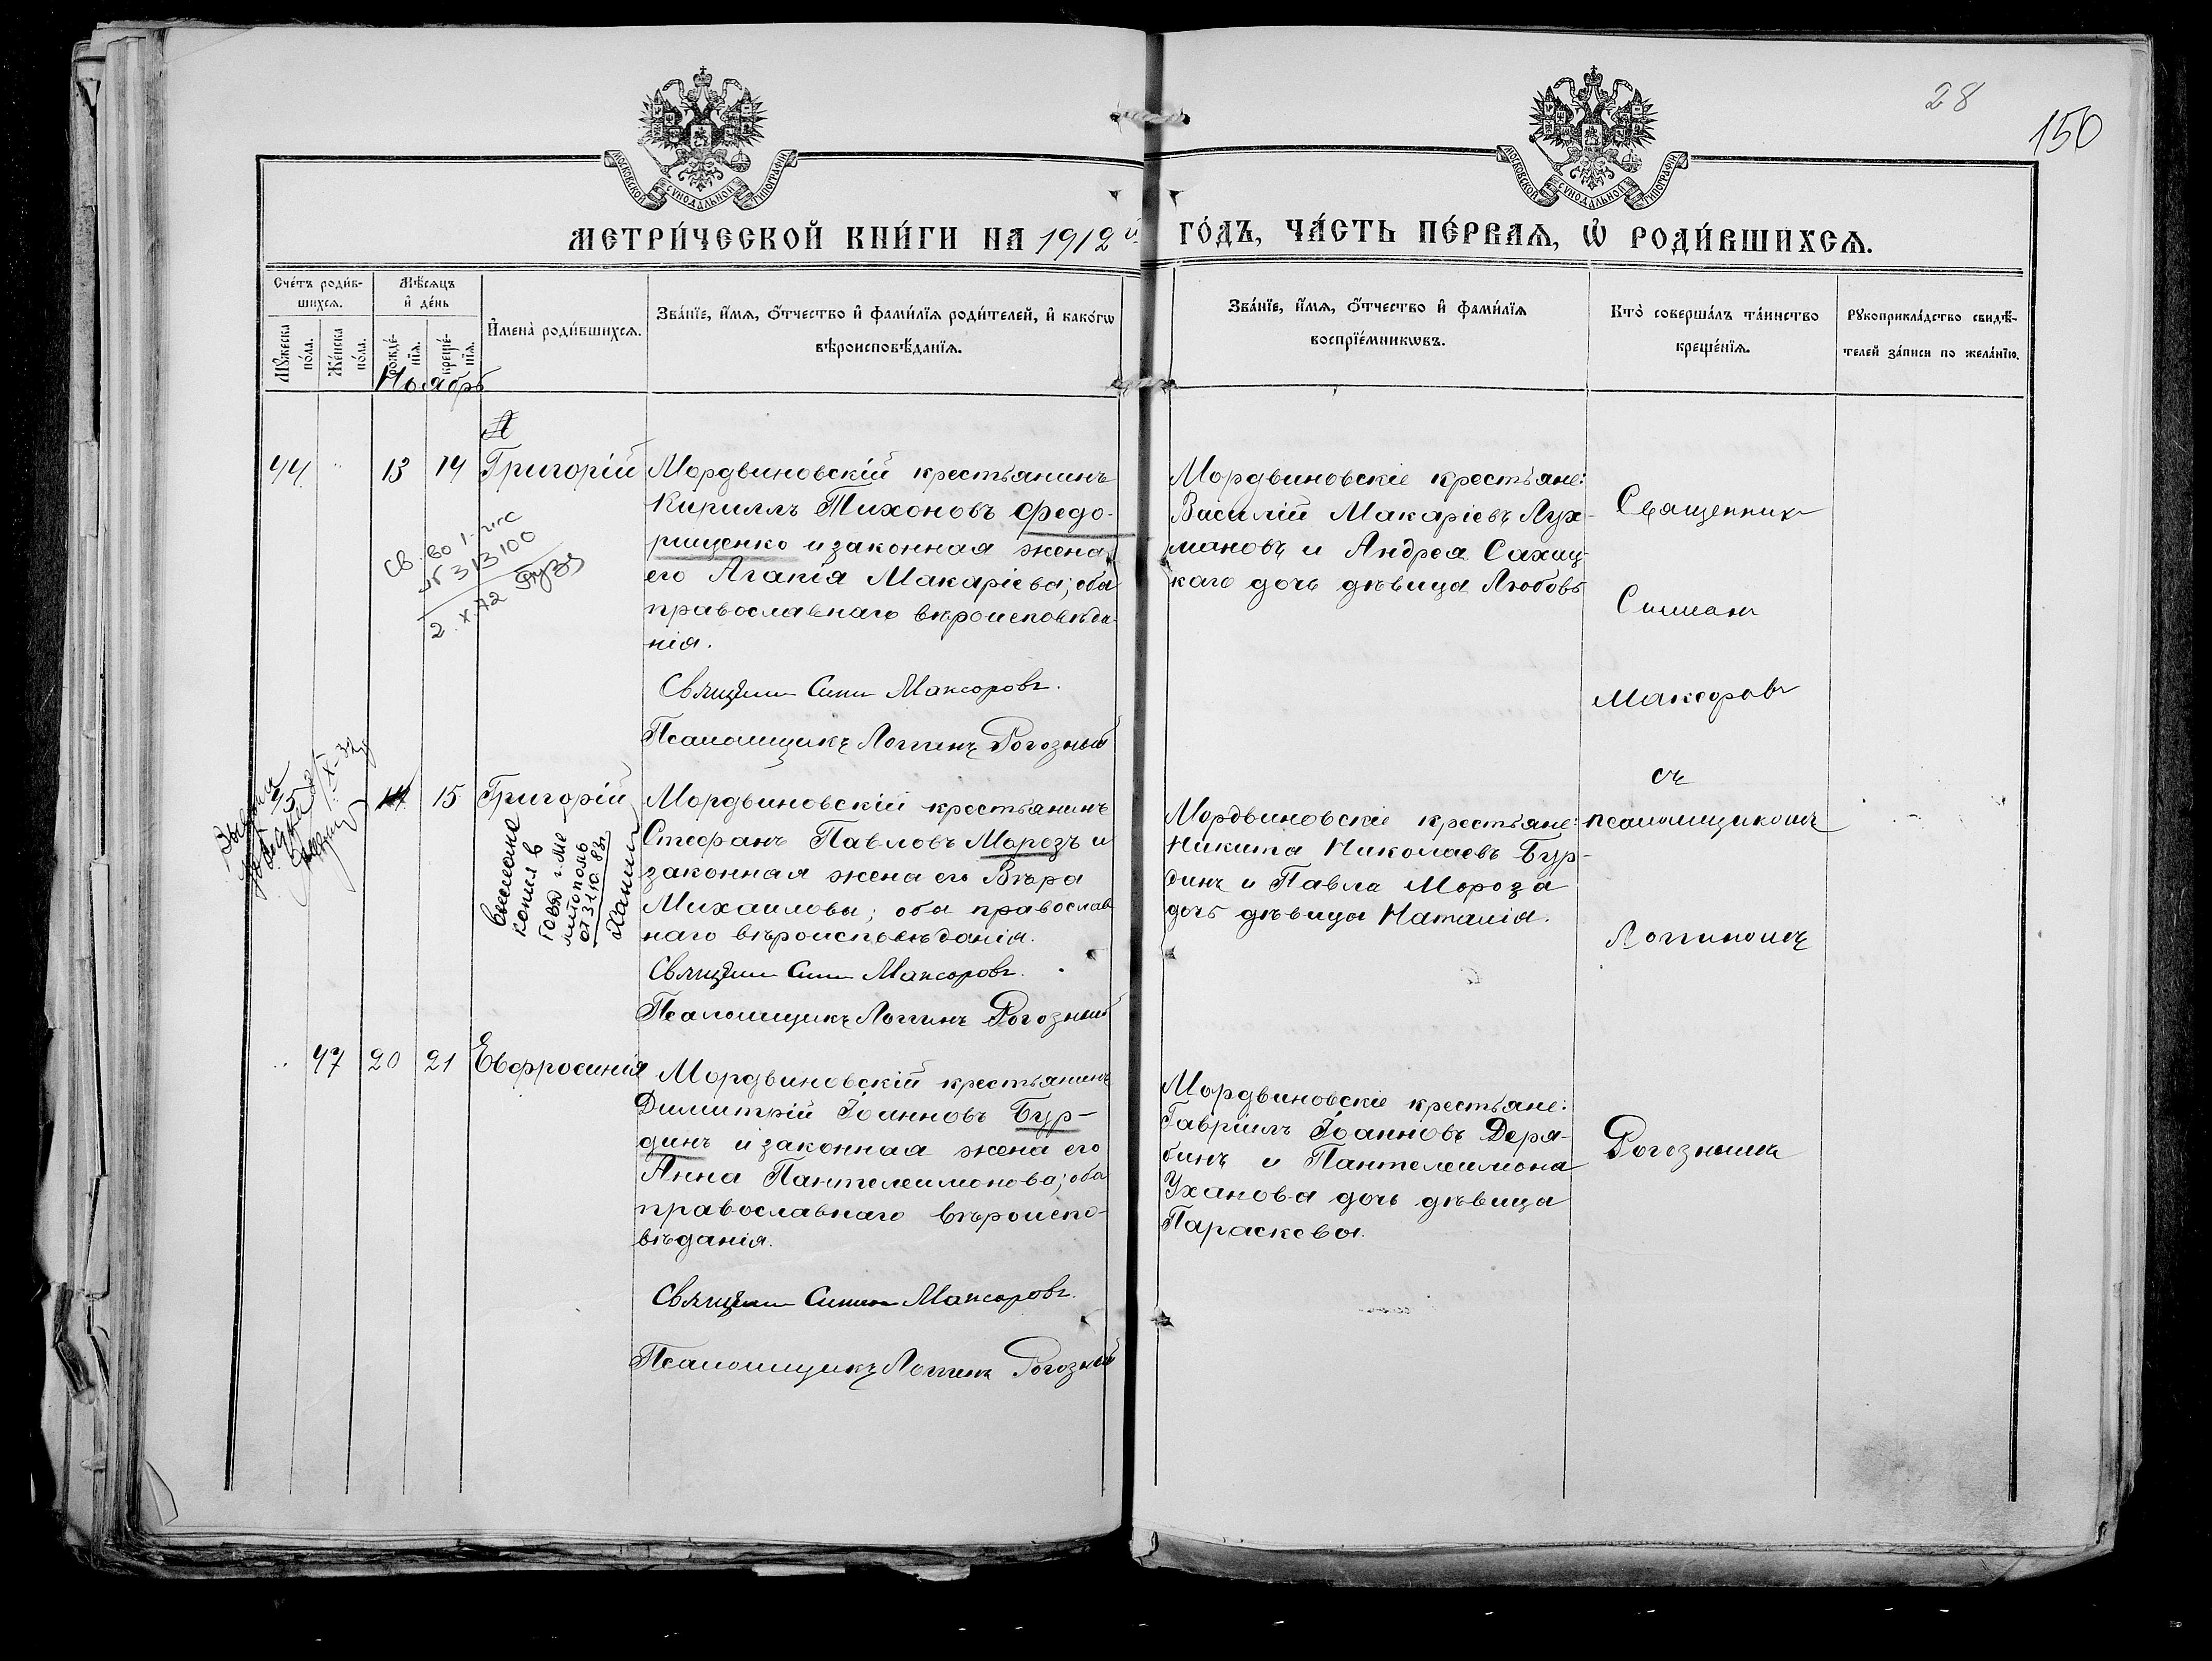 28
150
МОСКОВСКОЙ СѴНОДАЛЬНОЙ ТИПОГРАФІИ
МОСКОВСКОЙ СѴНОДАЛЬНОЙ ТИПОГРАФІИ
МЕТРИ́ЧЕСКОЙ КНИ́ГИ НА 1912 й
ГО́ДЪ, ЧА́СТЬ ПЕ́РВАЯ, Ѡ҆ РОДИ́ВШИХСѦ.
Сче́тъ роди́в-
шихсѧ.
Мꙋ́жеска
по́ла.
Же́нска
по́ла.
Мѣ́сѧцъ
и҆ де́нь
рожде́-
нїѧ.
креще́-
нїѧ.
И҆мена̀ роди́вшихсѧ.
Зва́нїе, и҆́мѧ, ѻ҆́тчество и҆ фами́лїѧ роди́телей, и҆ како́гѡ
вѣроисповѣ́данїѧ.
Зва́нїе, и҆́мѧ, ѻ҆́тчество и҆ фами́лїѧ
воспрїе́мникѡвъ.
Кто̀ соверша́лъ та́инство
креще́нїѧ.
Рꙋкоприкла́дство свидѣ́-
телей за́писи по жела́нїю.
Ноябрь
44
"
13
14
Григорій
Мордвиновскій крестьянинъ
Кириллъ Тихоновъ Федо-
рищенко и законная жена
его Агапія Макаріева; оба
православнаго вѣроисповѣда-
нія.
Св-во 1-
№ 313100
2.X.72
Священн Сим Максоровъ.
Псаломщикъ Логгинъ Рогозный
Мордвиновскіе крестьяне:
Василій Макаріевъ Лух-
мановъ и Андрея Сахац-
каго дочь дѣвица Любовь
Священник
Симеон
Максоров
съ
псаломщикомъ
Логгиномъ
Рогознымъ
45
14
15
Григорій
выслана
копия в
Говд г. Ме
литополь
от 31.10.83г.
Мордвиновскій крестьянинъ
Стефанъ Павловъ Морозъ и
законная жена его Вѣра
Михаилова; оба православ
наго вѣроисповѣданія.
Священн Сим Максоровъ.
Псаломщикъ Логгинъ Рогозный
Мордвиновскіе крестьяне:
Никита Николаевъ Бур-
динъ и Павла Мороза
дочь дѣвица Наталія.
"
47
20
21
Евфросинія
Мордвиновскій крестьянинъ
Димитрій Іоанновъ Бур-
динъ и законная жена его
Анна Пантелеимонова; оба
православнаго вѣроиспо-
вѣданія.
Священн Симеон Максоровъ.
Псаломщикъ Логгинъ Рогозный
Мордвиновскіе крестьяне:
Гавріилъ Іоанновъ Деря-
бинъ и Пантелеимона
Уханова дочь дѣвица
Параскева.